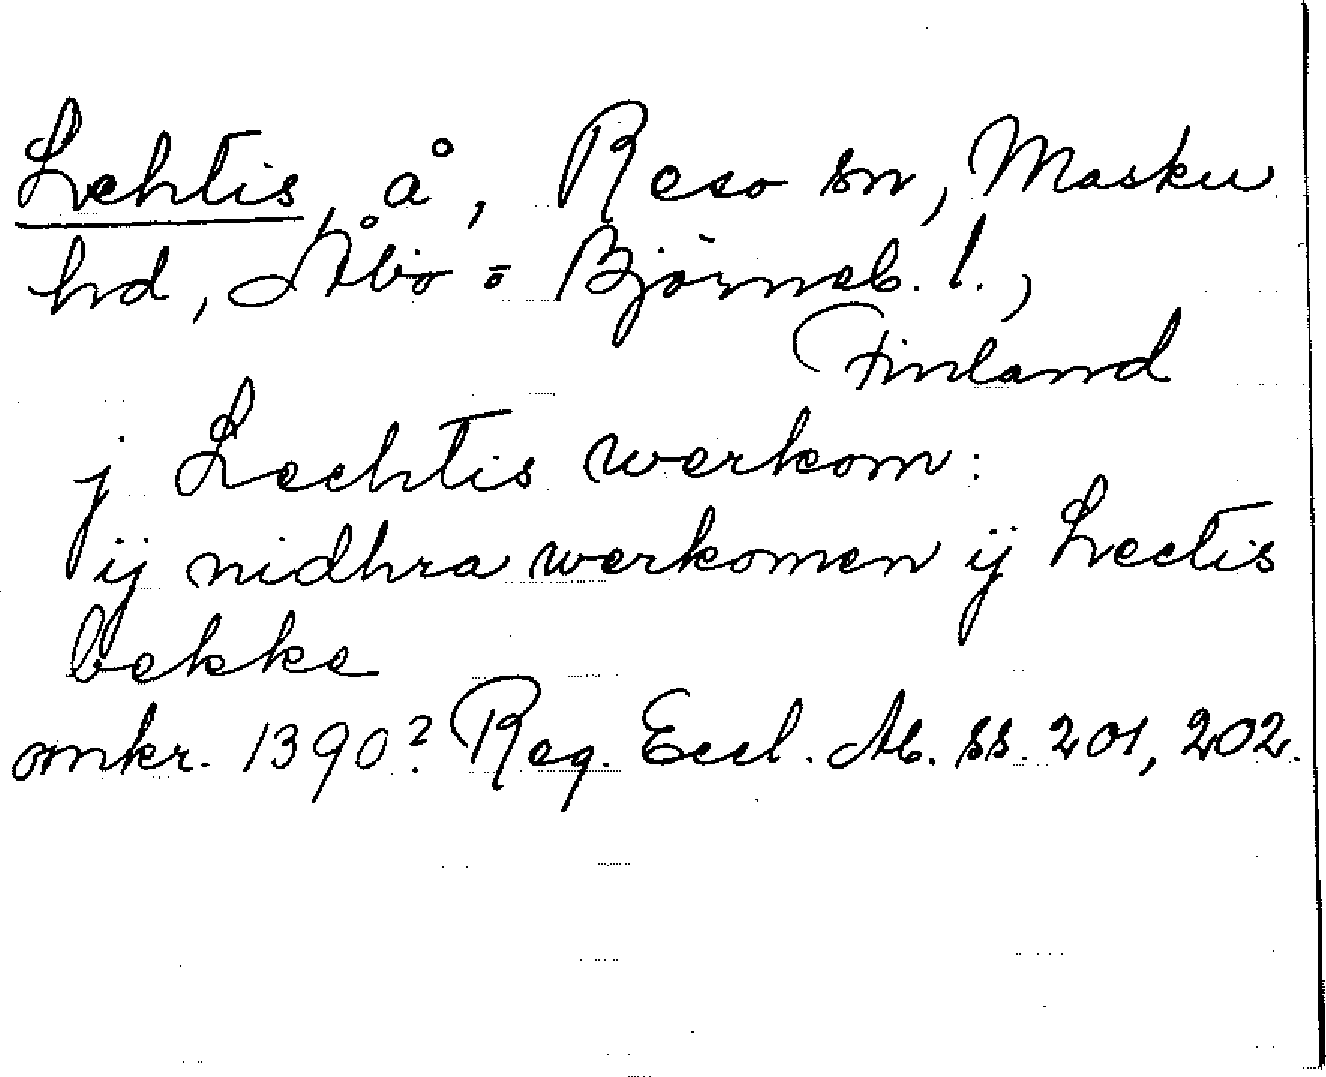 Lehtis, å, Reso sn, Masku
hd, Åbo = Björneb. l.,
Finland
j Lechtis werkom:
ij nidhra werkomen ij Lectis
bekke
omkr. 1390? Reg. Eccl. Ab. ss. 201, 202.